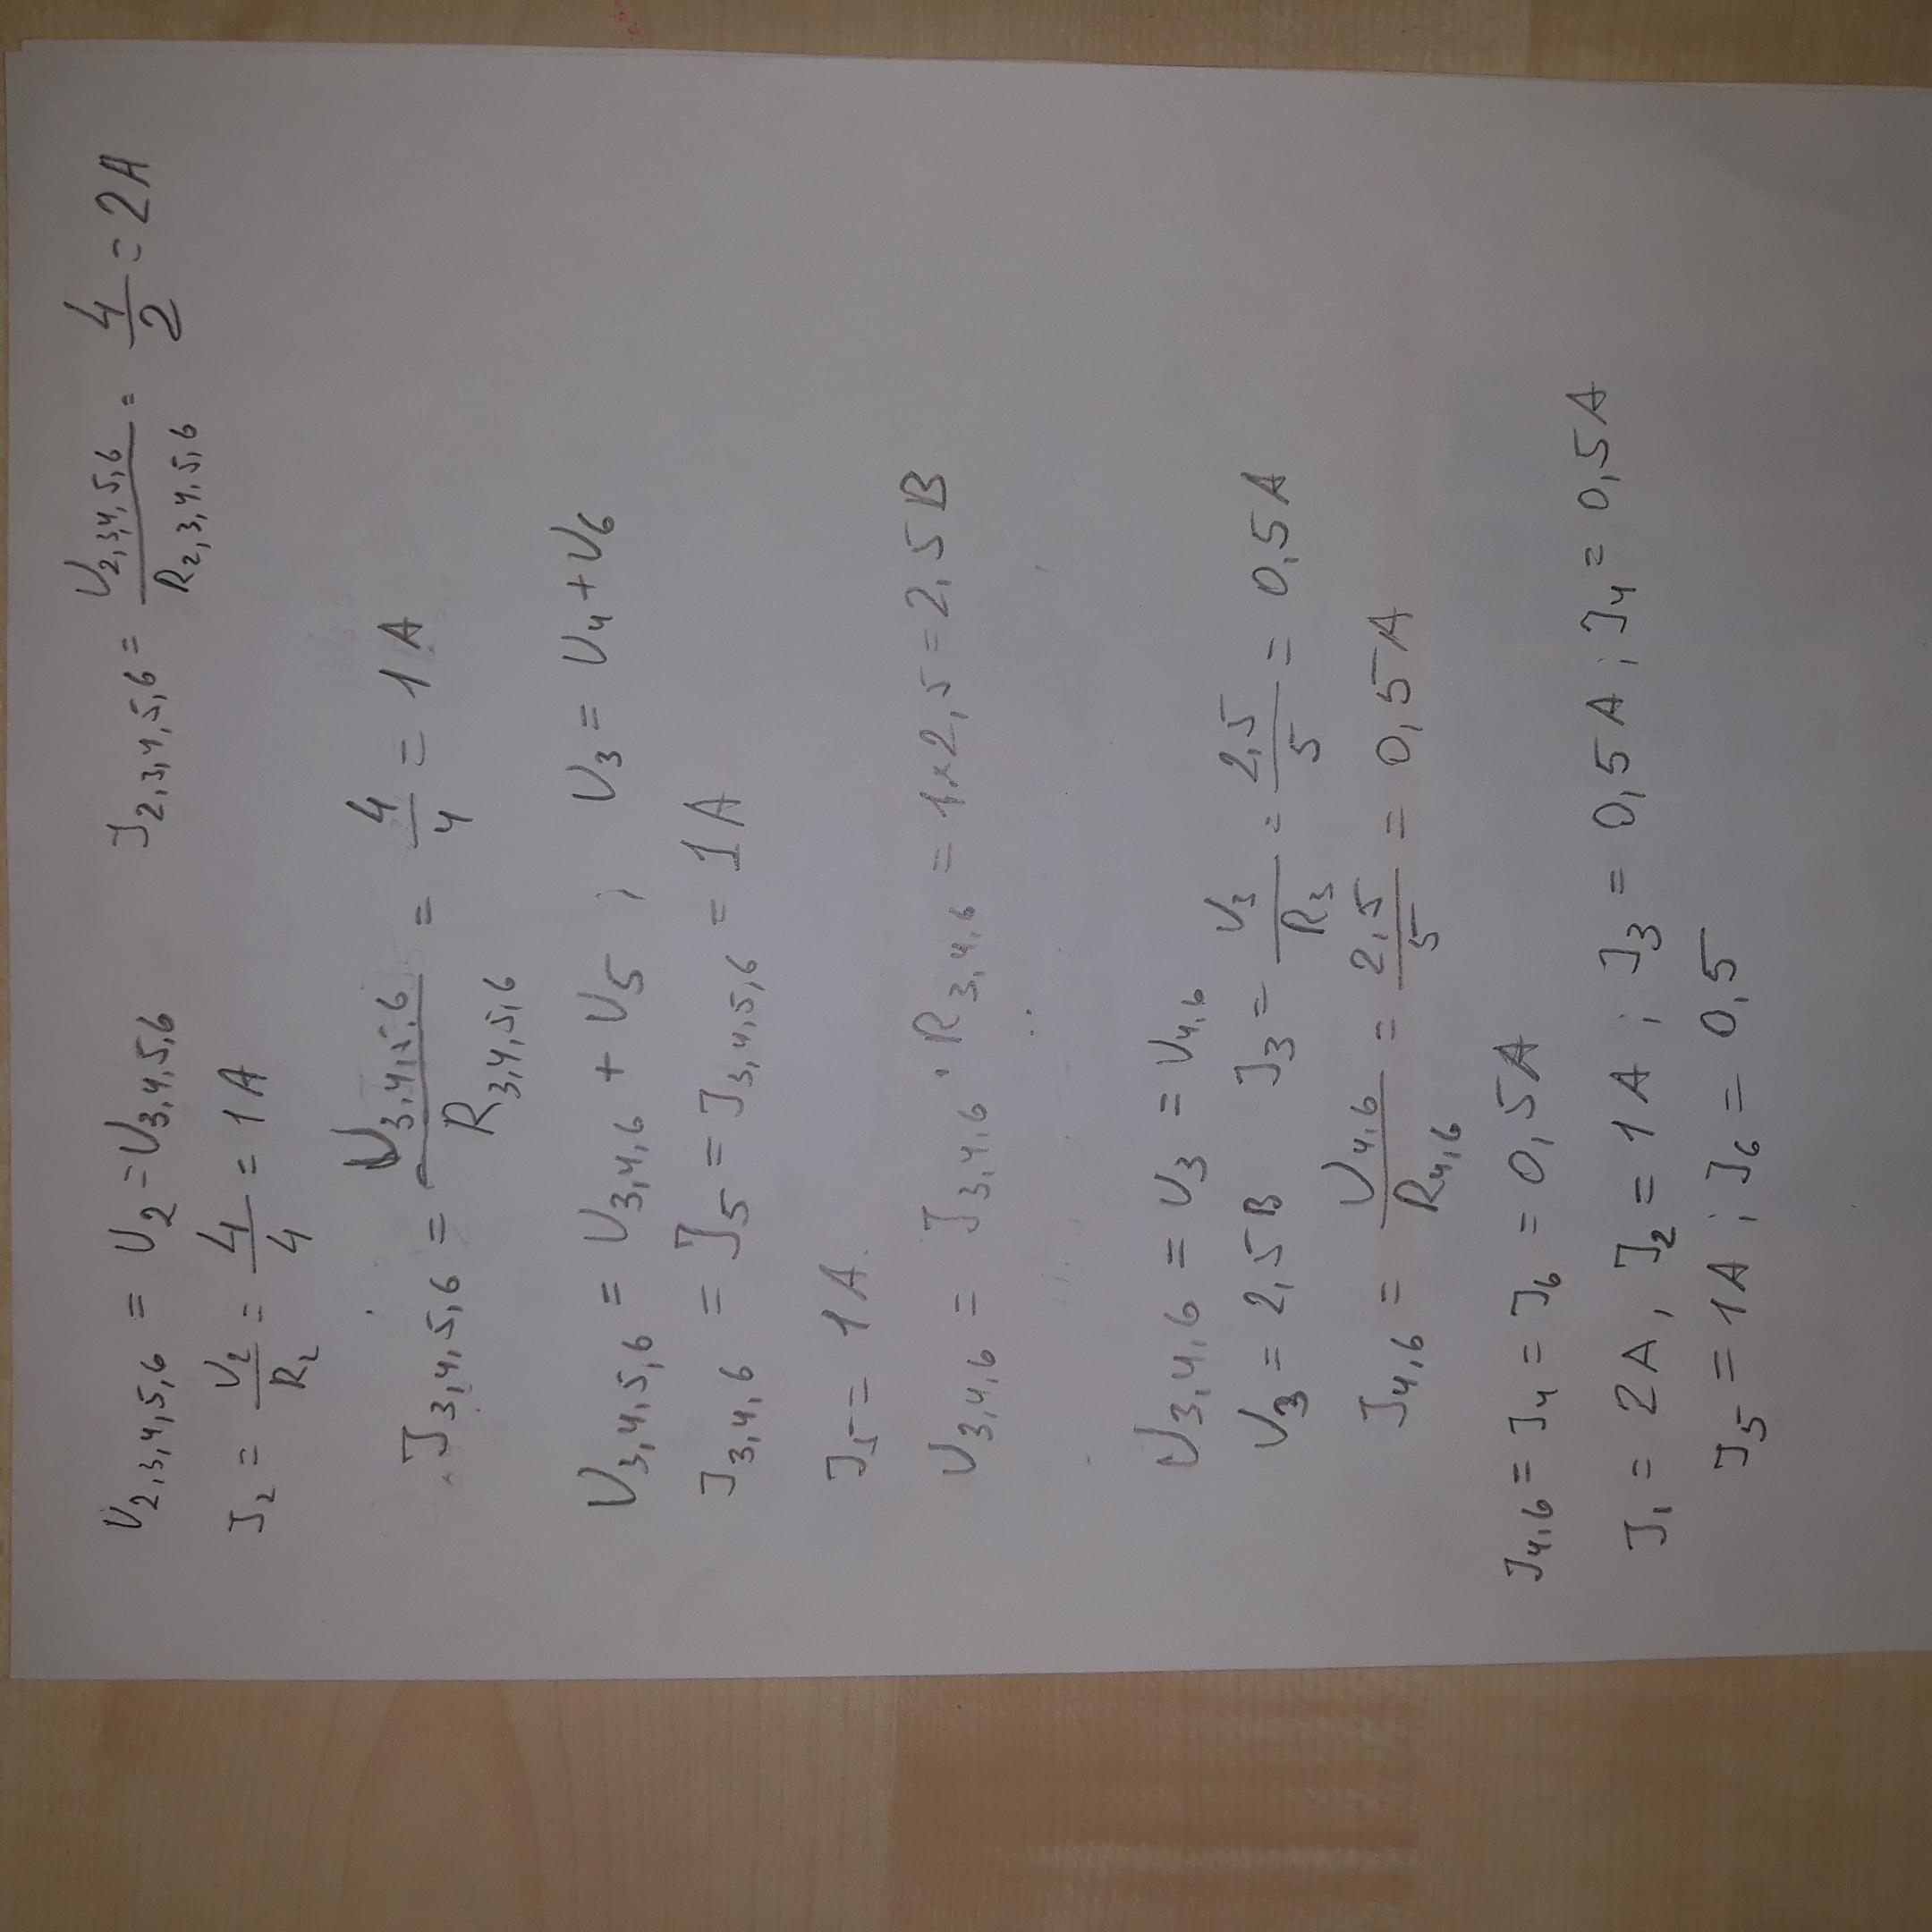 U2,3,4,5,6 = U2 = U3,4,5,6 J2,3,4,5,6 = U2,3,4,5,6 / R2,3,4,5,6 = 4/2 = 2A
J2 = U2/R2 = 4/4 = 1A
J3,4,5,6 = U3,4,5,6 / R3,4,5,6 = 4/4 = 1A
U3,4,5,6 = U3,4,6 + U5 ; U3 = U4 + U6
J3,4,6 = J5 = J3,4,5,6 = 1A
J5 = 1A.
U3,4,6 = J3,4,6 · R3,4,6 = 1×2,5 = 2,5В
U3,4,6 = U3 = U4,6
U3 = 2,5В J3 = U3/R3 = 2,5/5 = 0,5A
J4,6 = U4,6/R4,6 = 2,5/5 = 0,5A
J4,6 = J4 = J6 = 0,5A
J1 = 2A, J2 = 1A ; J3 = 0,5A ; J4 = 0,5A
J5 = 1A ; J6 = 0,5